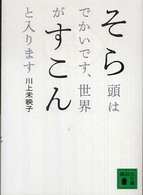 そら頭は
でかいです、世界
がすこん
と入ります
川上未映子